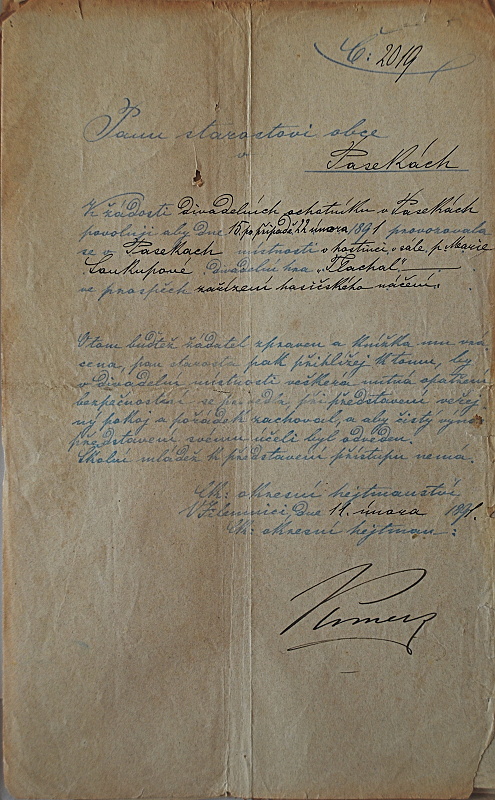 Č: 2019
Panu starostovi obce
v Pasekách
K žádosti divadelních ochotníků v Pasekách
povoluji aby dne 15. po případě 22 února 1891 provozovala
se v Pasekach místnosti v hostinci, sále, p. Marie
Soukupove, divadelní hra „Tlachal"
ve prospěch zařízení hasičského náčení.
O tom budtež žádatel zpraven a knížka mu vrá
cena, pan starosta pak přihlížej k tomu, by
v divadelní místnosti veškerá nutná opatření
bezpečnostní se provedla při představení veřej
ný pokoj a pořádek zachoval, a aby čistý výno
představení svému účeli byl odveden.
Školní mládež k představení přístupu nema.
Ck: okresní hejtmanství
dne 11. února 1891.
Ck: okresní hejtman: